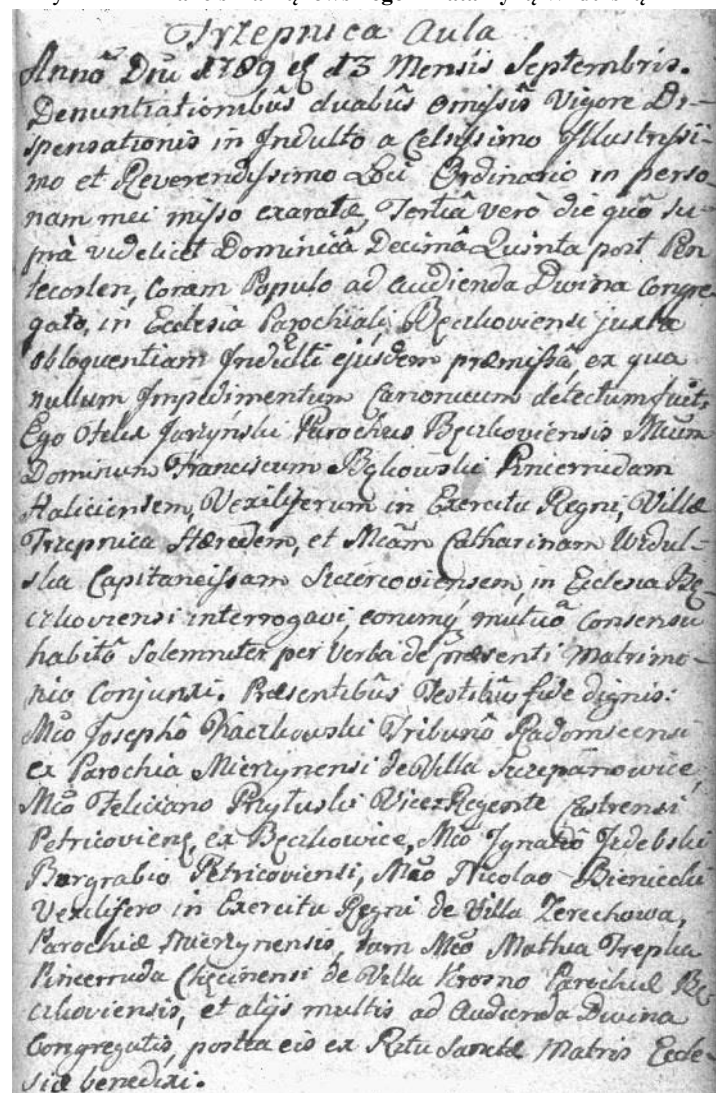 Trzepnica Aula
Anno Dnī 1789 d 13 Mensis Septembris.
Denuntiationibûs duabûs omissis Vigore Di-
spensationis in Indulto a Celsissimo Illustrissi-
mo et Reverendissimo Loci Ordinario in perso-
nam mei misso exaratæ, Tertiâ verò die quô su-
prà videlicet Dominicâ Decimâ Quinta post Pen
tecosten, coram Populo ad audienda Divina Congre-
gato, in Ecclesia Parochiali Bęczkoviensi juxta
obloquentiam Indulti ejusdem præmissâ, ex qua
nullum Impedimentum Canonicum detectum fuit,
Ego Felix Jurzyński Parochus Bęczkoviensis Mcum
Dominum Franciscum Bąkowski Pincernidam
Haliciensem, Vexiliferum in Exercitu Regni, Villæ
Trzepnica Hæredem, et Mcam Catharinam Widul-
ska Capitaneissam Szczercoviensem, in Ecclesia Bę-
czkoviensi interrogavi, eorumq mutuô Consensu
habitô Solemniter per Verba de præsenti Matrimo-
nio Conjunxi. Præsentibûs Testibûs fide dignis:
Mco Josephô Kaczkowski Tribunô Radomscensi
ex Parochia Mierzynensi de Villa Szczepanowice,
Mco Feliciano Przyłuski Vice Regente Castrensi
Petricovienẽ, ex Bęczkowice, Mco Ignatiô Izdebski
Burgrabio Petricoviensi, Mco Nicolao Bieniecki
Vexilifero in Exercitu Regni de Villa Zerechowa,
Parochiæ Mierzynensis, tam Mco Mathia Trepka
Pincernida Chęcinensi de Villa Krosno Parochiæ Bę-
czkoviensis, et alijs multis ad Audienda Divina
Congregatis, postea eis ex Ritu Sanctæ Matris Eccle-
siæ benedixi.